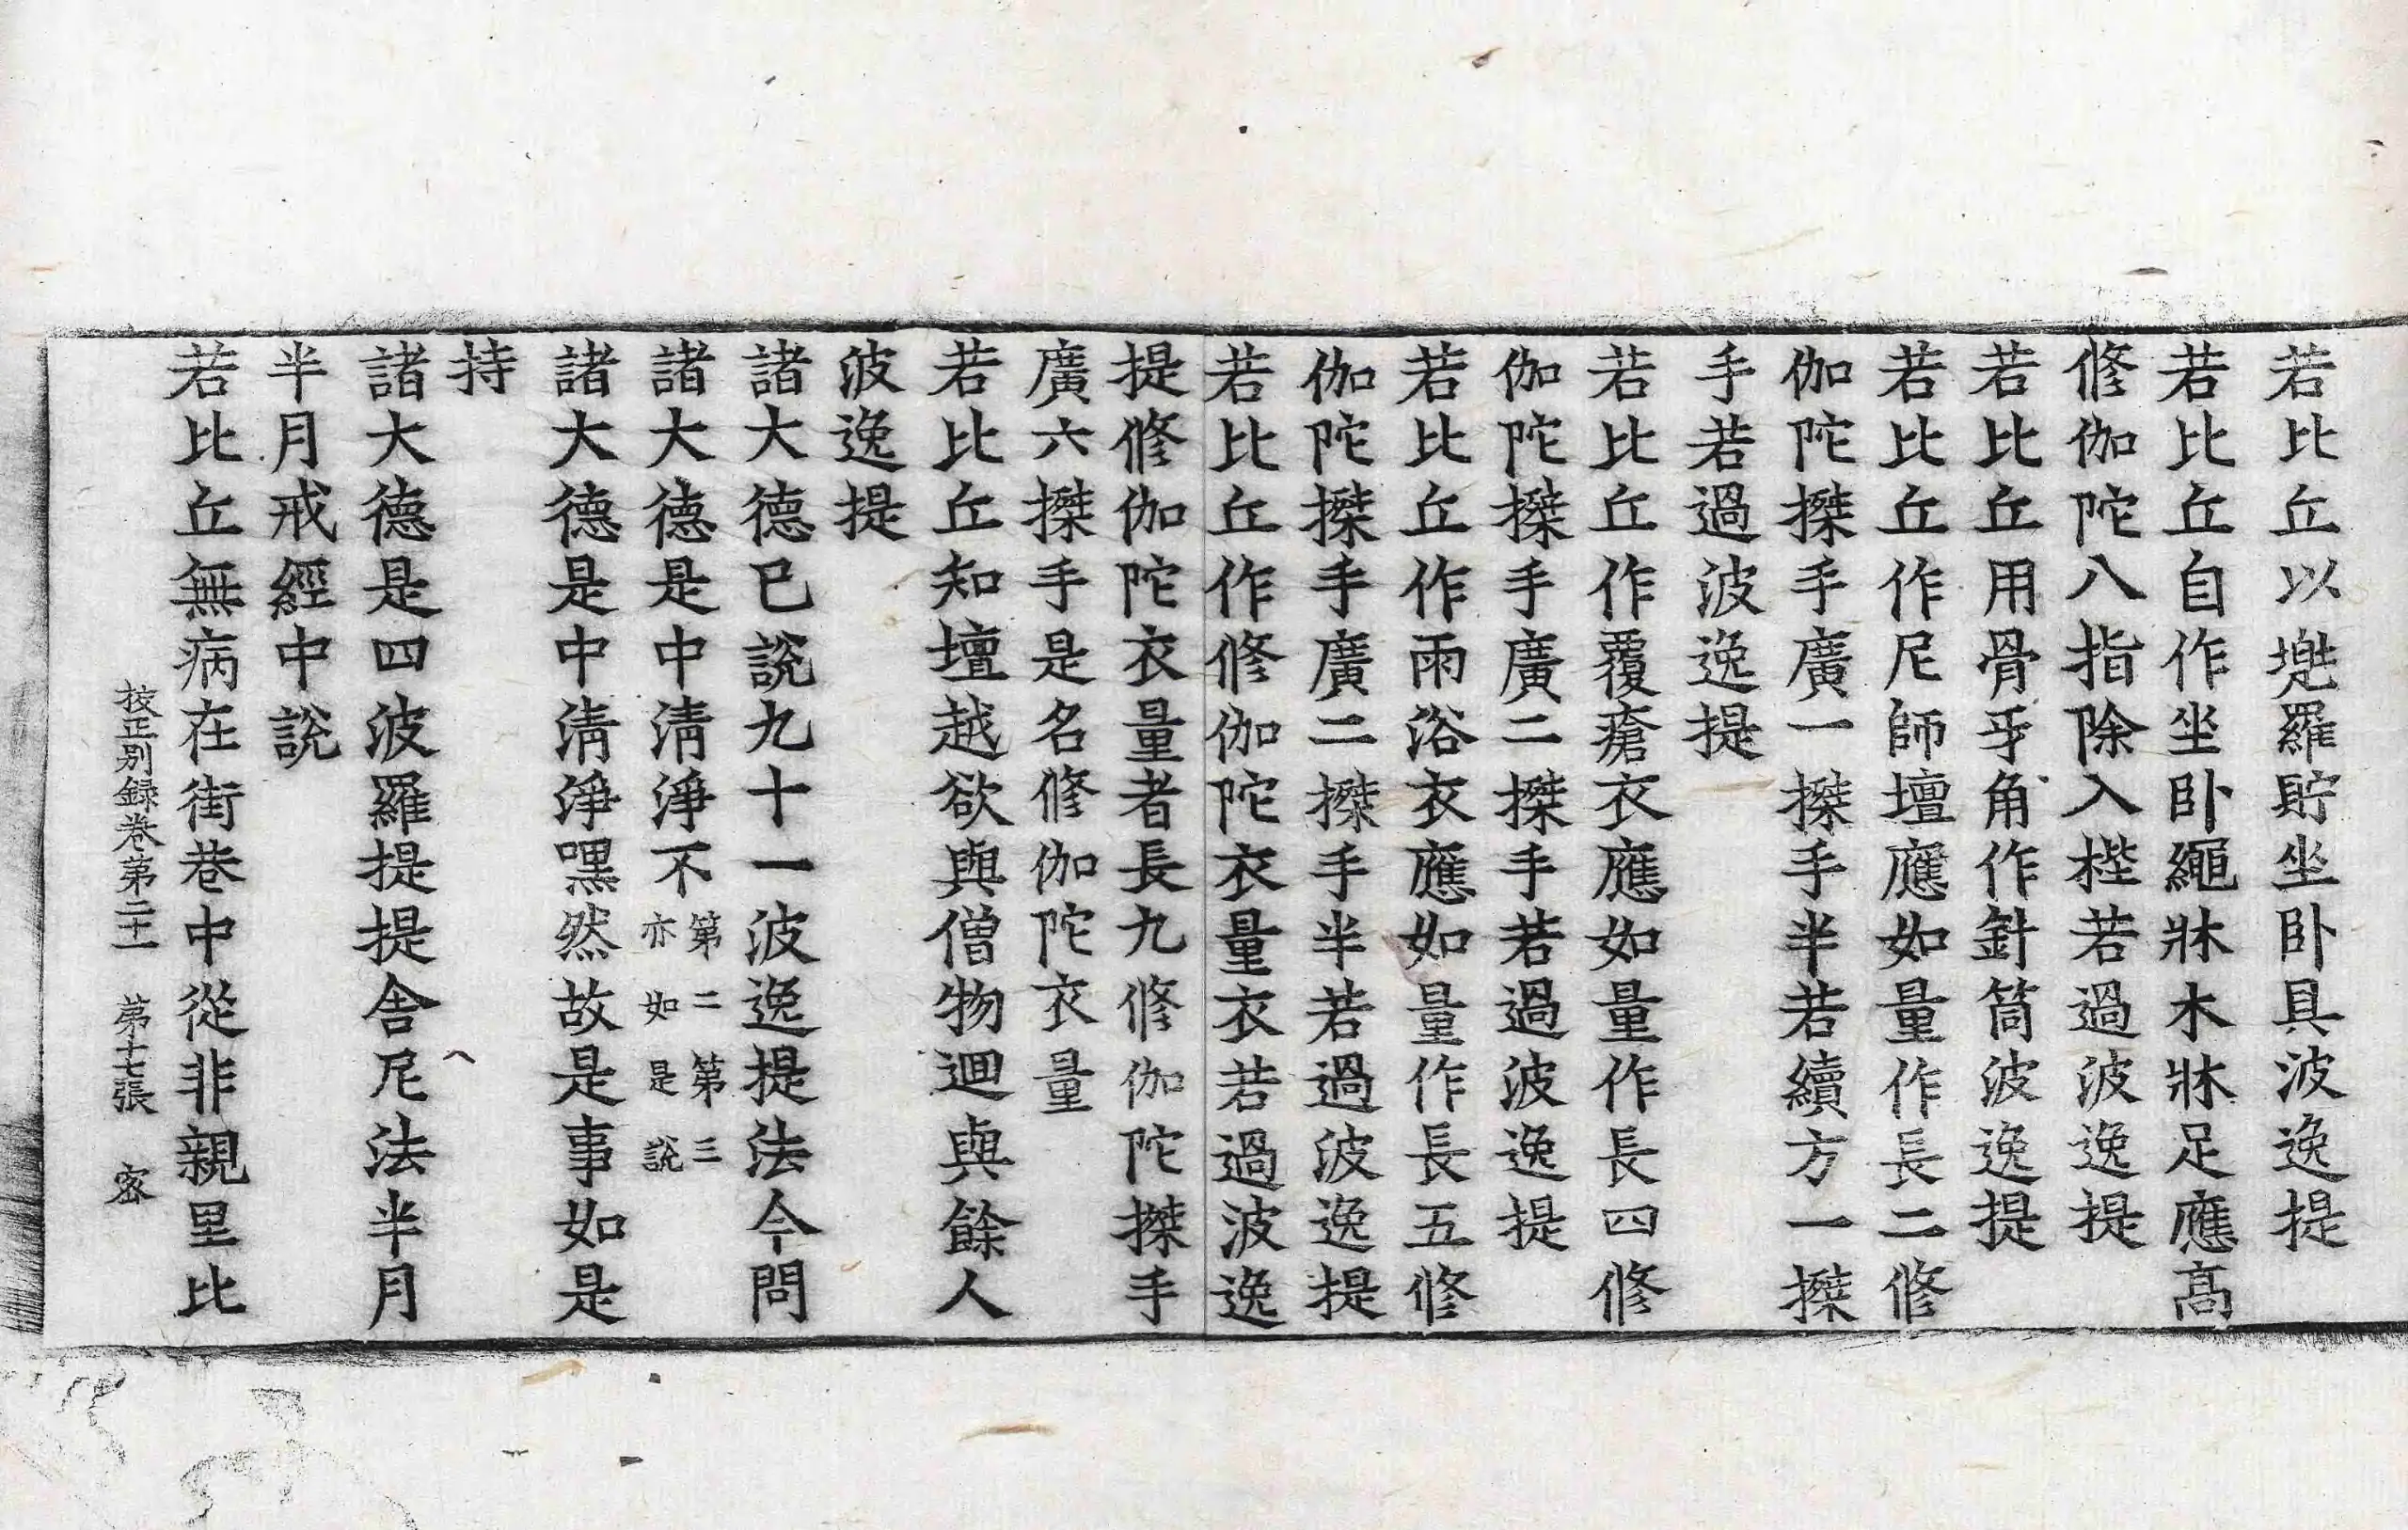 若比丘以兠羅貯坐卧具波逸提
若比丘自作坐卧繩牀木牀足應高
修伽陀八指除入梐若過波逸提
若比丘用骨牙角作針筒波逸提
若比丘作尼師壇應如量作長二修
伽陀搩手廣一搩手半若續方一搩
手若過波逸提
若比丘作覆瘡衣應如量作長四修
伽陀搩手廣二搩手若過波逸提
若比丘作雨浴衣應如量作長五修
伽陀搩手廣二搩手半若過波逸提
若比丘作修伽陀衣量衣若過波逸
提修伽陀衣量者長九修伽陀搩手
廣六搩手是名修伽陀衣量
若比丘知壇越欲與僧物迴與餘人
波逸提
諸大德已說九十一波逸提法今問
諸大德是中清淨不第二第三亦如是說
諸大德是中清淨嘿然故是事如是
持
諸大德是四波羅提提舍尼法半月
半月戒經中說
若比丘無病在街巷中從非親里比
挍正別録卷第二十一 第十七張 宻